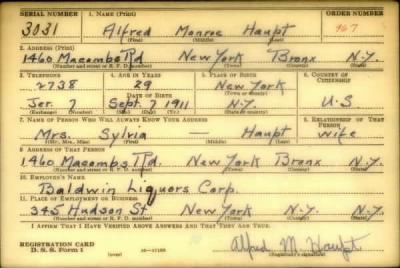 SERIAL NUMBER 1. NAME (Print) ORDER NUMBER
3031 Alfred Monroe Haupt 967
(First) (Middle) (Last)
2. ADDRESS (Print)
1460 Macombs Rd New York Bronx N.Y.
(Number and street or R. F. D. number) (Town) (County) (State)
3. TELEPHONE 4. AGE IN YEARS 5. PLACE OF BIRTH 6. COUNTRY OF CITIZENSHIP
2738 29 New York
DATE OF BIRTH (Town or county)
Jer. 7 Sept. 7 1911 N.Y. U.S
(Exchange) (Number) (Mo.) (Day) (Yr.) (State or country)
7. NAME OF PERSON WHO WILL ALWAYS KNOW YOUR ADDRESS 8. RELATIONSHIP OF THAT PERSON
Mrs. Sylvia — Haupt wife
(Mr., Mrs., Miss) (First) (Middle) (Last)
9. ADDRESS OF THAT PERSON
1460 Macombs Rd. New York Bronx N.Y.
(Number and street or R. F. D. number) (Town) (County) (State)
10. EMPLOYER'S NAME
Baldwin Liquors Corp.
11. PLACE OF EMPLOYMENT OR BUSINESS
345 Hudson St New York N.Y. N.Y.
(Number and street or R. F. D. number) (Town) (County) (State)
I AFFIRM THAT I HAVE VERIFIED ABOVE ANSWERS AND THAT THEY ARE TRUE.
REGISTRATION CARD
D. S. S. Form 1 (over) 16—17105 Alfred M. Haupt